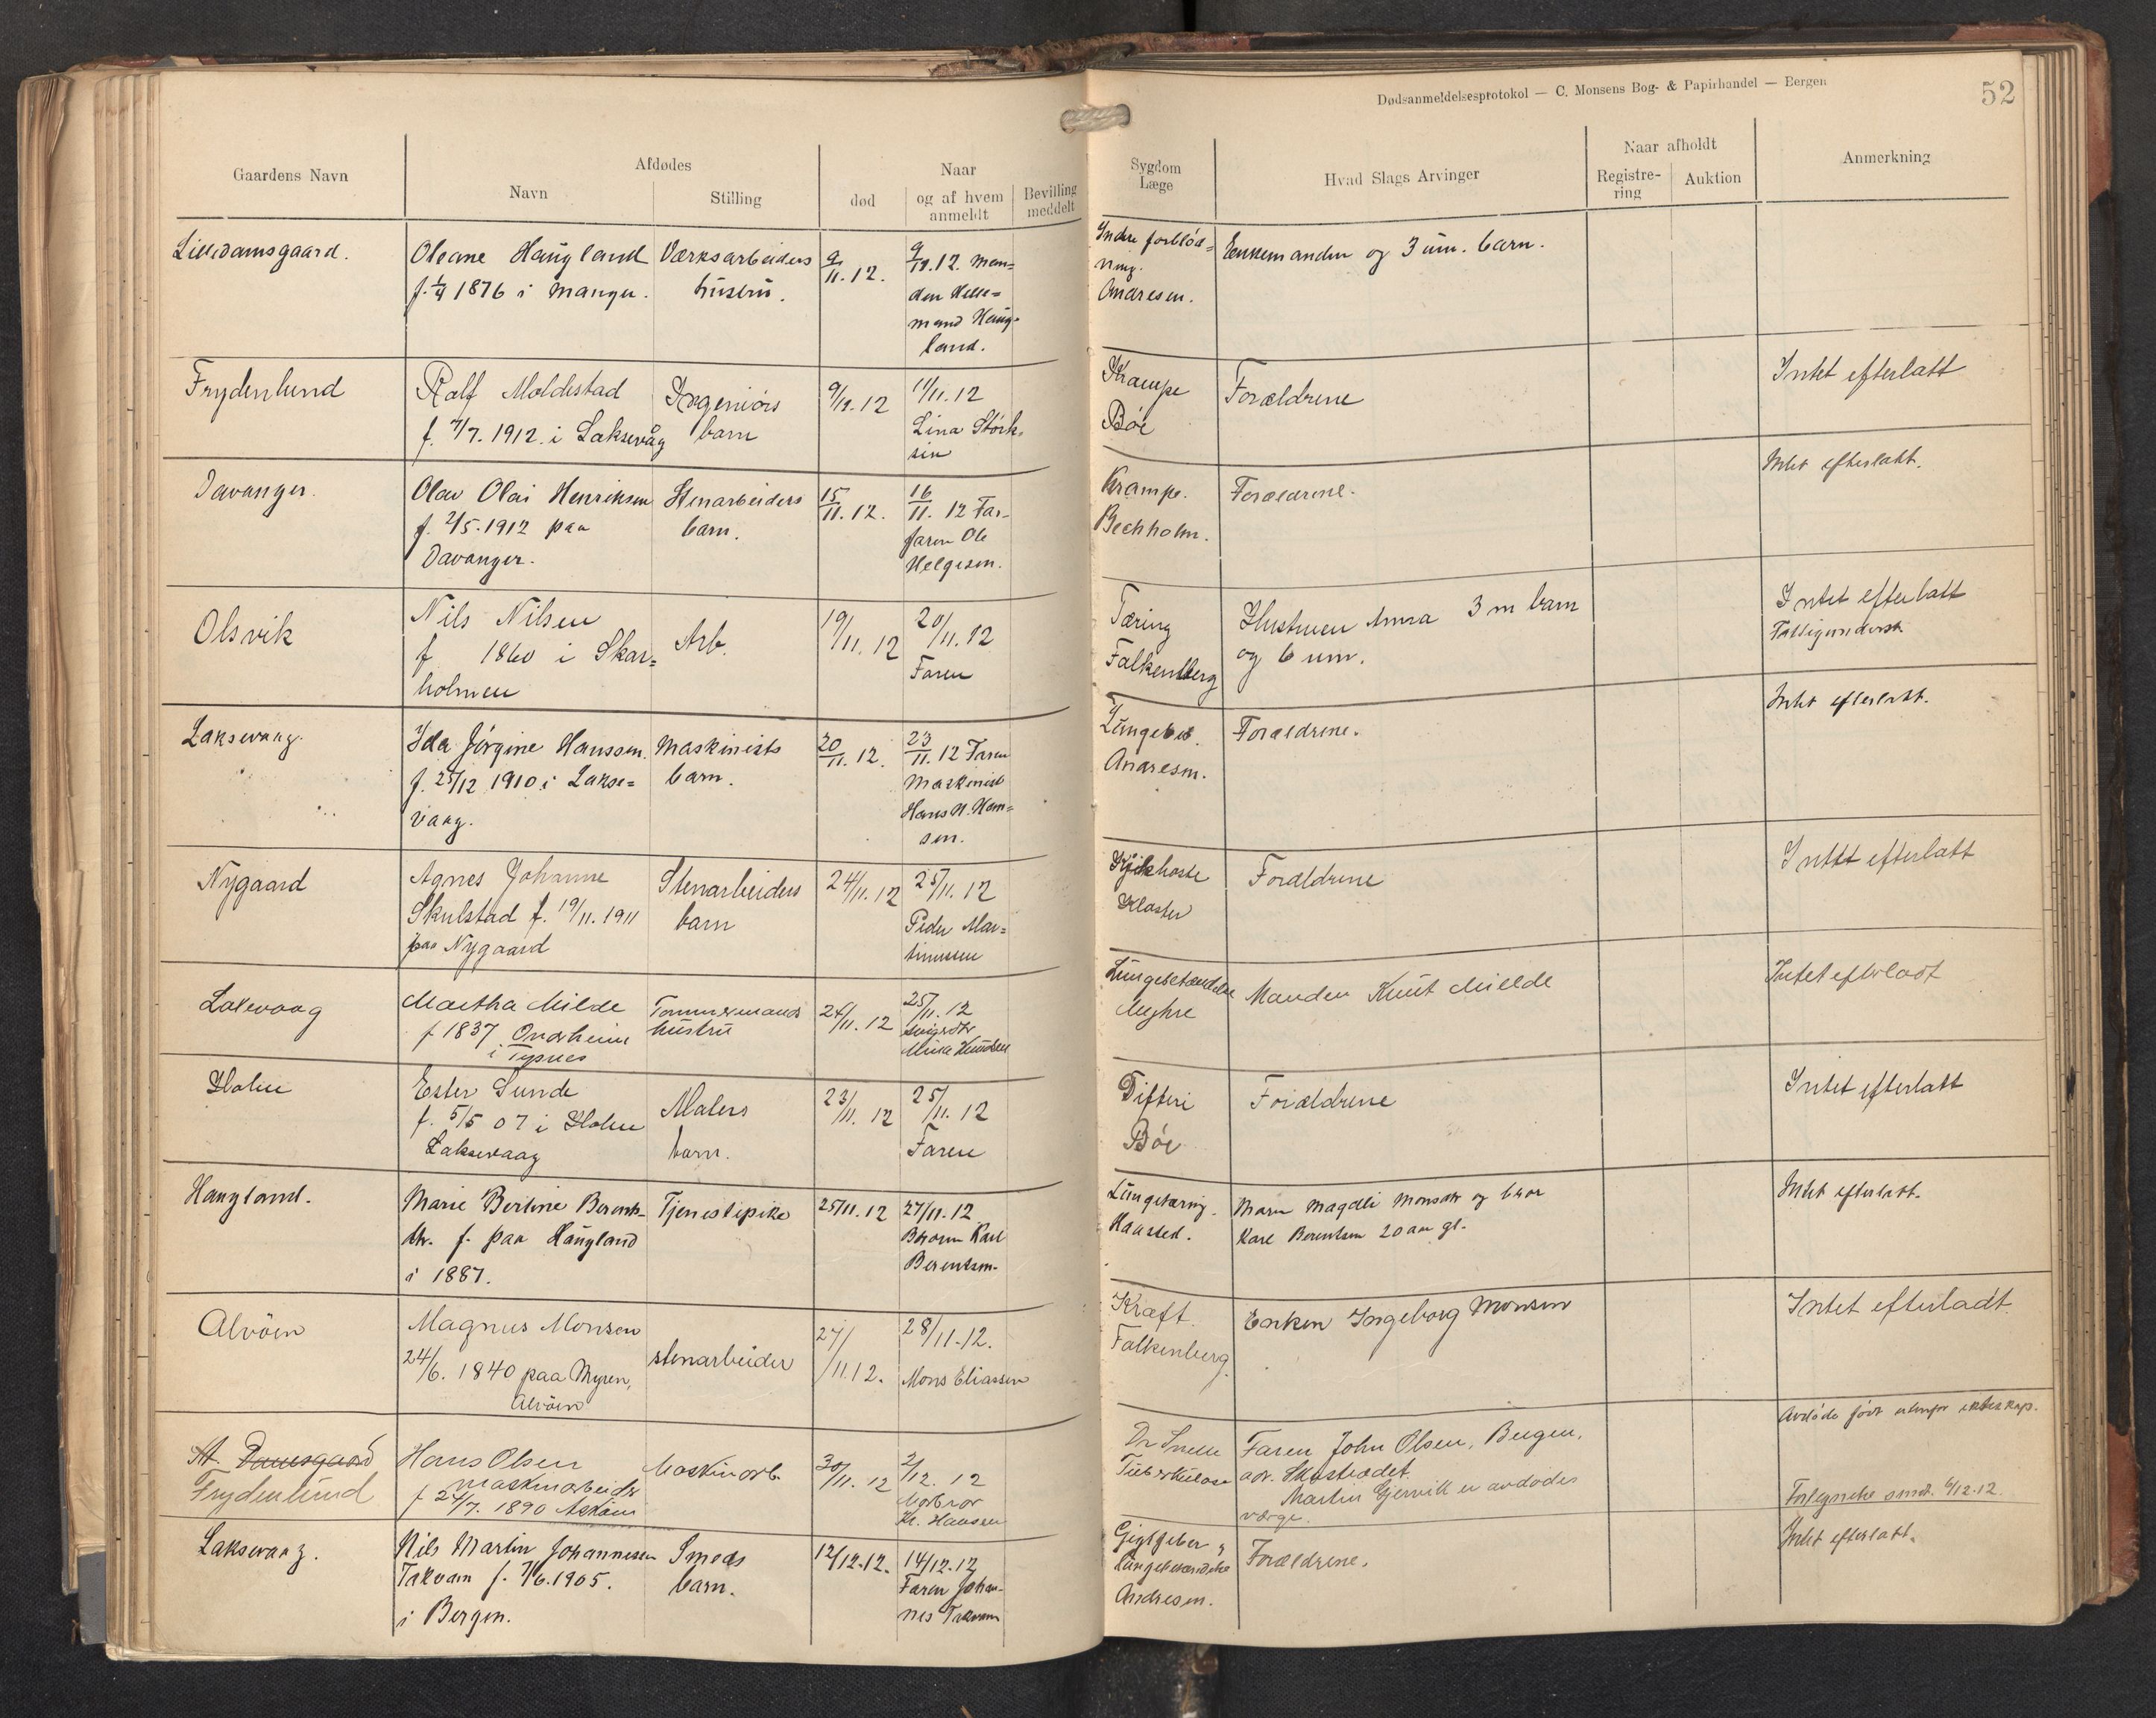 Dødsanmeldelsesprotokol — C. Monsens Bog- & Papirhandel — Bergen
52
Gaardens Navn
Afdødes
Navn
Stilling
død
Naar
og af hvem
anmeldt
Bevilling
meddelt
Sygdom
Læge
Hvad Slags Arvinger
Naar afholdt
Registre-
ring
Auktion
Anmerkning
Lilledamsgaard.
Oleane Haugland
1876 i Manger.
Værksarbeiders
hustru.
9/11. 12.
9/11. 12. Man=
den Helle=
mand Haug=
land.
Indre forblød=
ning.
Andresen.
Enkemanden og 3 um. barn.
Frydenlund
Ralf Moldestad
f. 7/7. 1912. i Laksevåg
Ingeniørs
barn
9/11. 12
11/11. 12
Lina Størk-
sen
Krampe
Bøe
Forældrene
Intet efterlatt
Davanger.
Olav Olai Henriksen
f. 2/5. 1912 paa
Davanger.
Stenarbeiders
barn.
15/11. 12.
16/11. 12 Far-
faren Ole
Helgesen.
Krampe.
Bechholm.
Forældrene.
Intet efterlatt.
Olsvik
Nils Nilsen
f 1860 i Skar=
holmen
Arb.
19/11. 12
20/11. 12
Faren
Tæring
Falkenberg
Hustruen Anna 3 m barn
og 6 um.
Intet efterlatt
Fattigunderst
Laksevaag.
Ida Jørgine Hanssen.
f. 25/12 1910 i Lakse=
vaag.
Maskinists
barn.
20/11. 12.
23/11. 12 Faren
Maskinist
Hans H. Han=
sen.
Lungebet.
Andresen.
Forældrene.
Intet efterlatt.
Nygaard
Agnes Johanne
Skulstad f. 19/11. 1911
paa Nygaard
Stenarbeiders
barn
24/11. 12
25/11. 12
Peder Mar=
tinussen
Kikhoste
Kloster
Forældrene
Intet efterlatt
Laksevaag
Martha Milde
f 1837 Onarheim
i Tysnes
Tømmermands
hustru
24/11. 12
25/11. 12
Mina Knudsen
Lungebetændelse
Myhre
Manden Knut Mielde
Intet efterladt
Holen
Ester Sunde
f. 5/5 07 i Holen
Laksevaag
Malers
barn.
23/11. 12
25/11. 12
Faren
Difteri
Bøe
Forældrene
Intet efterlatt
Haugland.
Marie Bertine Berents-
dtr. f. paa Haugland
i 1887.
Tjenestepike
25/11. 12
27/11. 12.
Broren Karl
Berentsen.
Lungetæring.
Kaasted.
Moren Magdli Monsdtr og bror
Karl Berentsen 20 aar gl.
Intet efterlatt.
Alvøen
Magnus Monsen
24/6. 1840 paa Myren,
Alvøen
stenarbeider
27/11. 12.
28/11. 12.
Mons Eliassen
Kræft.
Falkenberg.
Enken Ingeborg Monsen
Intet efterladt.
St. Damsgaard
Frydenlund
Hans Olsen
maskinarbeider
f 24/7. 1890 Askøen
Maskinarb.
30/11. 12
2/12. 12
Morbror
Kr. Hanssen
Dr Snelle
Tuberkulose
Faren John Olsen, Bergen,
adr. Skostrædet.
Martin Gjervik er avdødes
værge.
Avdøde født utenfor ekteskap.
12.12.
Laksevaag.
Nils Martin Johannesen
Takvam f. 7/6. 1905.
i Bergen.
Smeds
barn.
12/12. 12.
14/12. 12
Faren Johan-
nes Takvam
Gigtfeber
lungebetændelse
Andresen.
Forældrene.
Intet efterlatt.